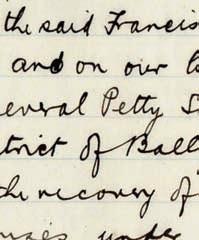 the said Francis
and on our b
several Petty S
trict of Ball
the recovery of
under